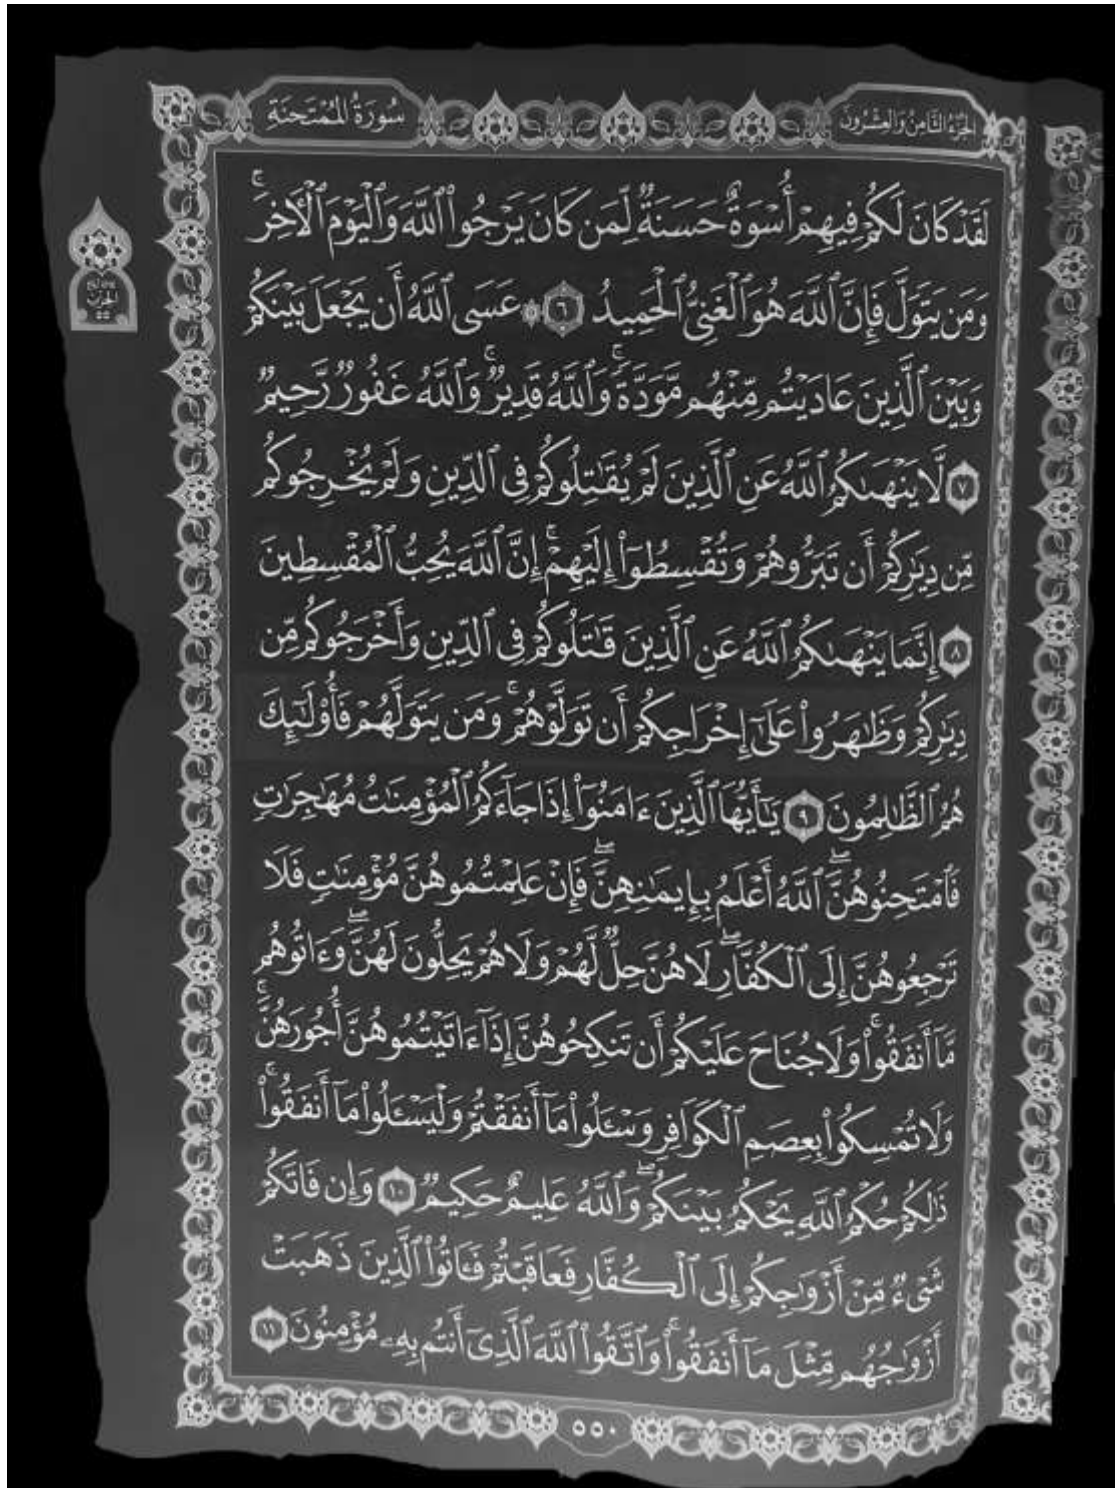 الجزء الثامن والعشرون
سُورَةُ المُمْتَحنَةِ
لَقَدْ كَانَ لَكُمْ فِيهِمْ أُسْوَةٌ حَسَنَةٌ لِّمَن كَانَ يَرْجُوا۟ ٱللَّهَ وَٱلْيَوْمَ ٱلْأَخِرَ ۚ
وَمَن يَتَوَلَّ فَإِنَّ ٱللَّهَ هُوَ ٱلْغَنِىُّ ٱلْحَمِيدُ ٦ ۞ عَسَى ٱللَّهُ أَن يَجْعَلَ بَيْنَكُمْ
وَبَيْنَ ٱلَّذِينَ عَادَيْتُم مِّنْهُم مَّوَدَّةً ۚ وَٱللَّهُ قَدِيرٌ ۚ وَٱللَّهُ غَفُورٌ رَّحِيمٌ
٧ لَّا يَنْهَىٰكُمُ ٱللَّهُ عَنِ ٱلَّذِينَ لَمْ يُقَٰتِلُوكُمْ فِى ٱلدِّينِ وَلَمْ يُخْرِجُوكُم
مِّن دِيَٰرِكُمْ أَن تَبَرُّوهُمْ وَتُقْسِطُوٓا۟ إِلَيْهِمْ ۚ إِنَّ ٱللَّهَ يُحِبُّ ٱلْمُقْسِطِينَ
٨ إِنَّمَا يَنْهَىٰكُمُ ٱللَّهُ عَنِ ٱلَّذِينَ قَٰتَلُوكُمْ فِى ٱلدِّينِ وَأَخْرَجُوكُم مِّن
دِيَٰرِكُمْ وَظَٰهَرُوا۟ عَلَىٰٓ إِخْرَاجِكُمْ أَن تَوَلَّوْهُمْ ۚ وَمَن يَتَوَلَّهُمْ فَأُو۟لَٰٓئِكَ
هُمُ ٱلظَّٰلِمُونَ ٩ يَٰٓأَيُّهَا ٱلَّذِينَ ءَامَنُوٓا۟ إِذَا جَآءَكُمُ ٱلْمُؤْمِنَٰتُ مُهَٰجِرَٰتٍ
فَٱمْتَحِنُوهُنَّ ۖ ٱللَّهُ أَعْلَمُ بِإِيمَٰنِهِنَّ ۖ فَإِنْ عَلِمْتُمُوهُنَّ مُؤْمِنَٰتٍ فَلَا
تَرْجِعُوهُنَّ إِلَى ٱلْكُفَّارِ ۖ لَا هُنَّ حِلٌّ لَّهُمْ وَلَا هُمْ يَحِلُّونَ لَهُنَّ ۖ وَءَاتُوهُم
مَّآ أَنفَقُوا۟ ۚ وَلَا جُنَاحَ عَلَيْكُمْ أَن تَنكِحُوهُنَّ إِذَآ ءَاتَيْتُمُوهُنَّ أُجُورَهُنَّ ۚ
وَلَا تُمْسِكُوا۟ بِعِصَمِ ٱلْكَوَافِرِ وَسْـَٔلُوا۟ مَآ أَنفَقْتُمْ وَلْيَسْـَٔلُوا۟ مَآ أَنفَقُوا۟ ۚ
ذَٰلِكُمْ حُكْمُ ٱللَّهِ يَحْكُمُ بَيْنَكُمْ ۖ وَٱللَّهُ عَلِيمٌ حَكِيمٌ ١٠ وَإِن فَاتَكُمْ
شَىْءٌ مِّنْ أَزْوَٰجِكُمْ إِلَى ٱلْكُفَّارِ فَعَاقَبْتُمْ فَـَٔاتُوا۟ ٱلَّذِينَ ذَهَبَتْ
أَزْوَٰجُهُم مِّثْلَ مَآ أَنفَقُوا۟ ۚ وَٱتَّقُوا۟ ٱللَّهَ ٱلَّذِىٓ أَنتُم بِهِۦ مُؤْمِنُونَ ١١
٥٥٠